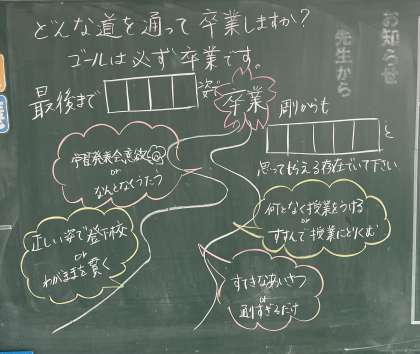 どんな道を通って卒業しますか?
ゴールは必ず卒業です。
お知らせ
先生から
最後まで
姿で
卒業
周りからも
と
思って
もらえる存在でいて下さい
学習発表会意欲に
or
なんとなくうたう
正しい姿で登下校
or
わがままを貫く
何となく授業をうける
or
すすんで授業にとりくむ
すてきなあいさつ
or
通りすぎるだけ